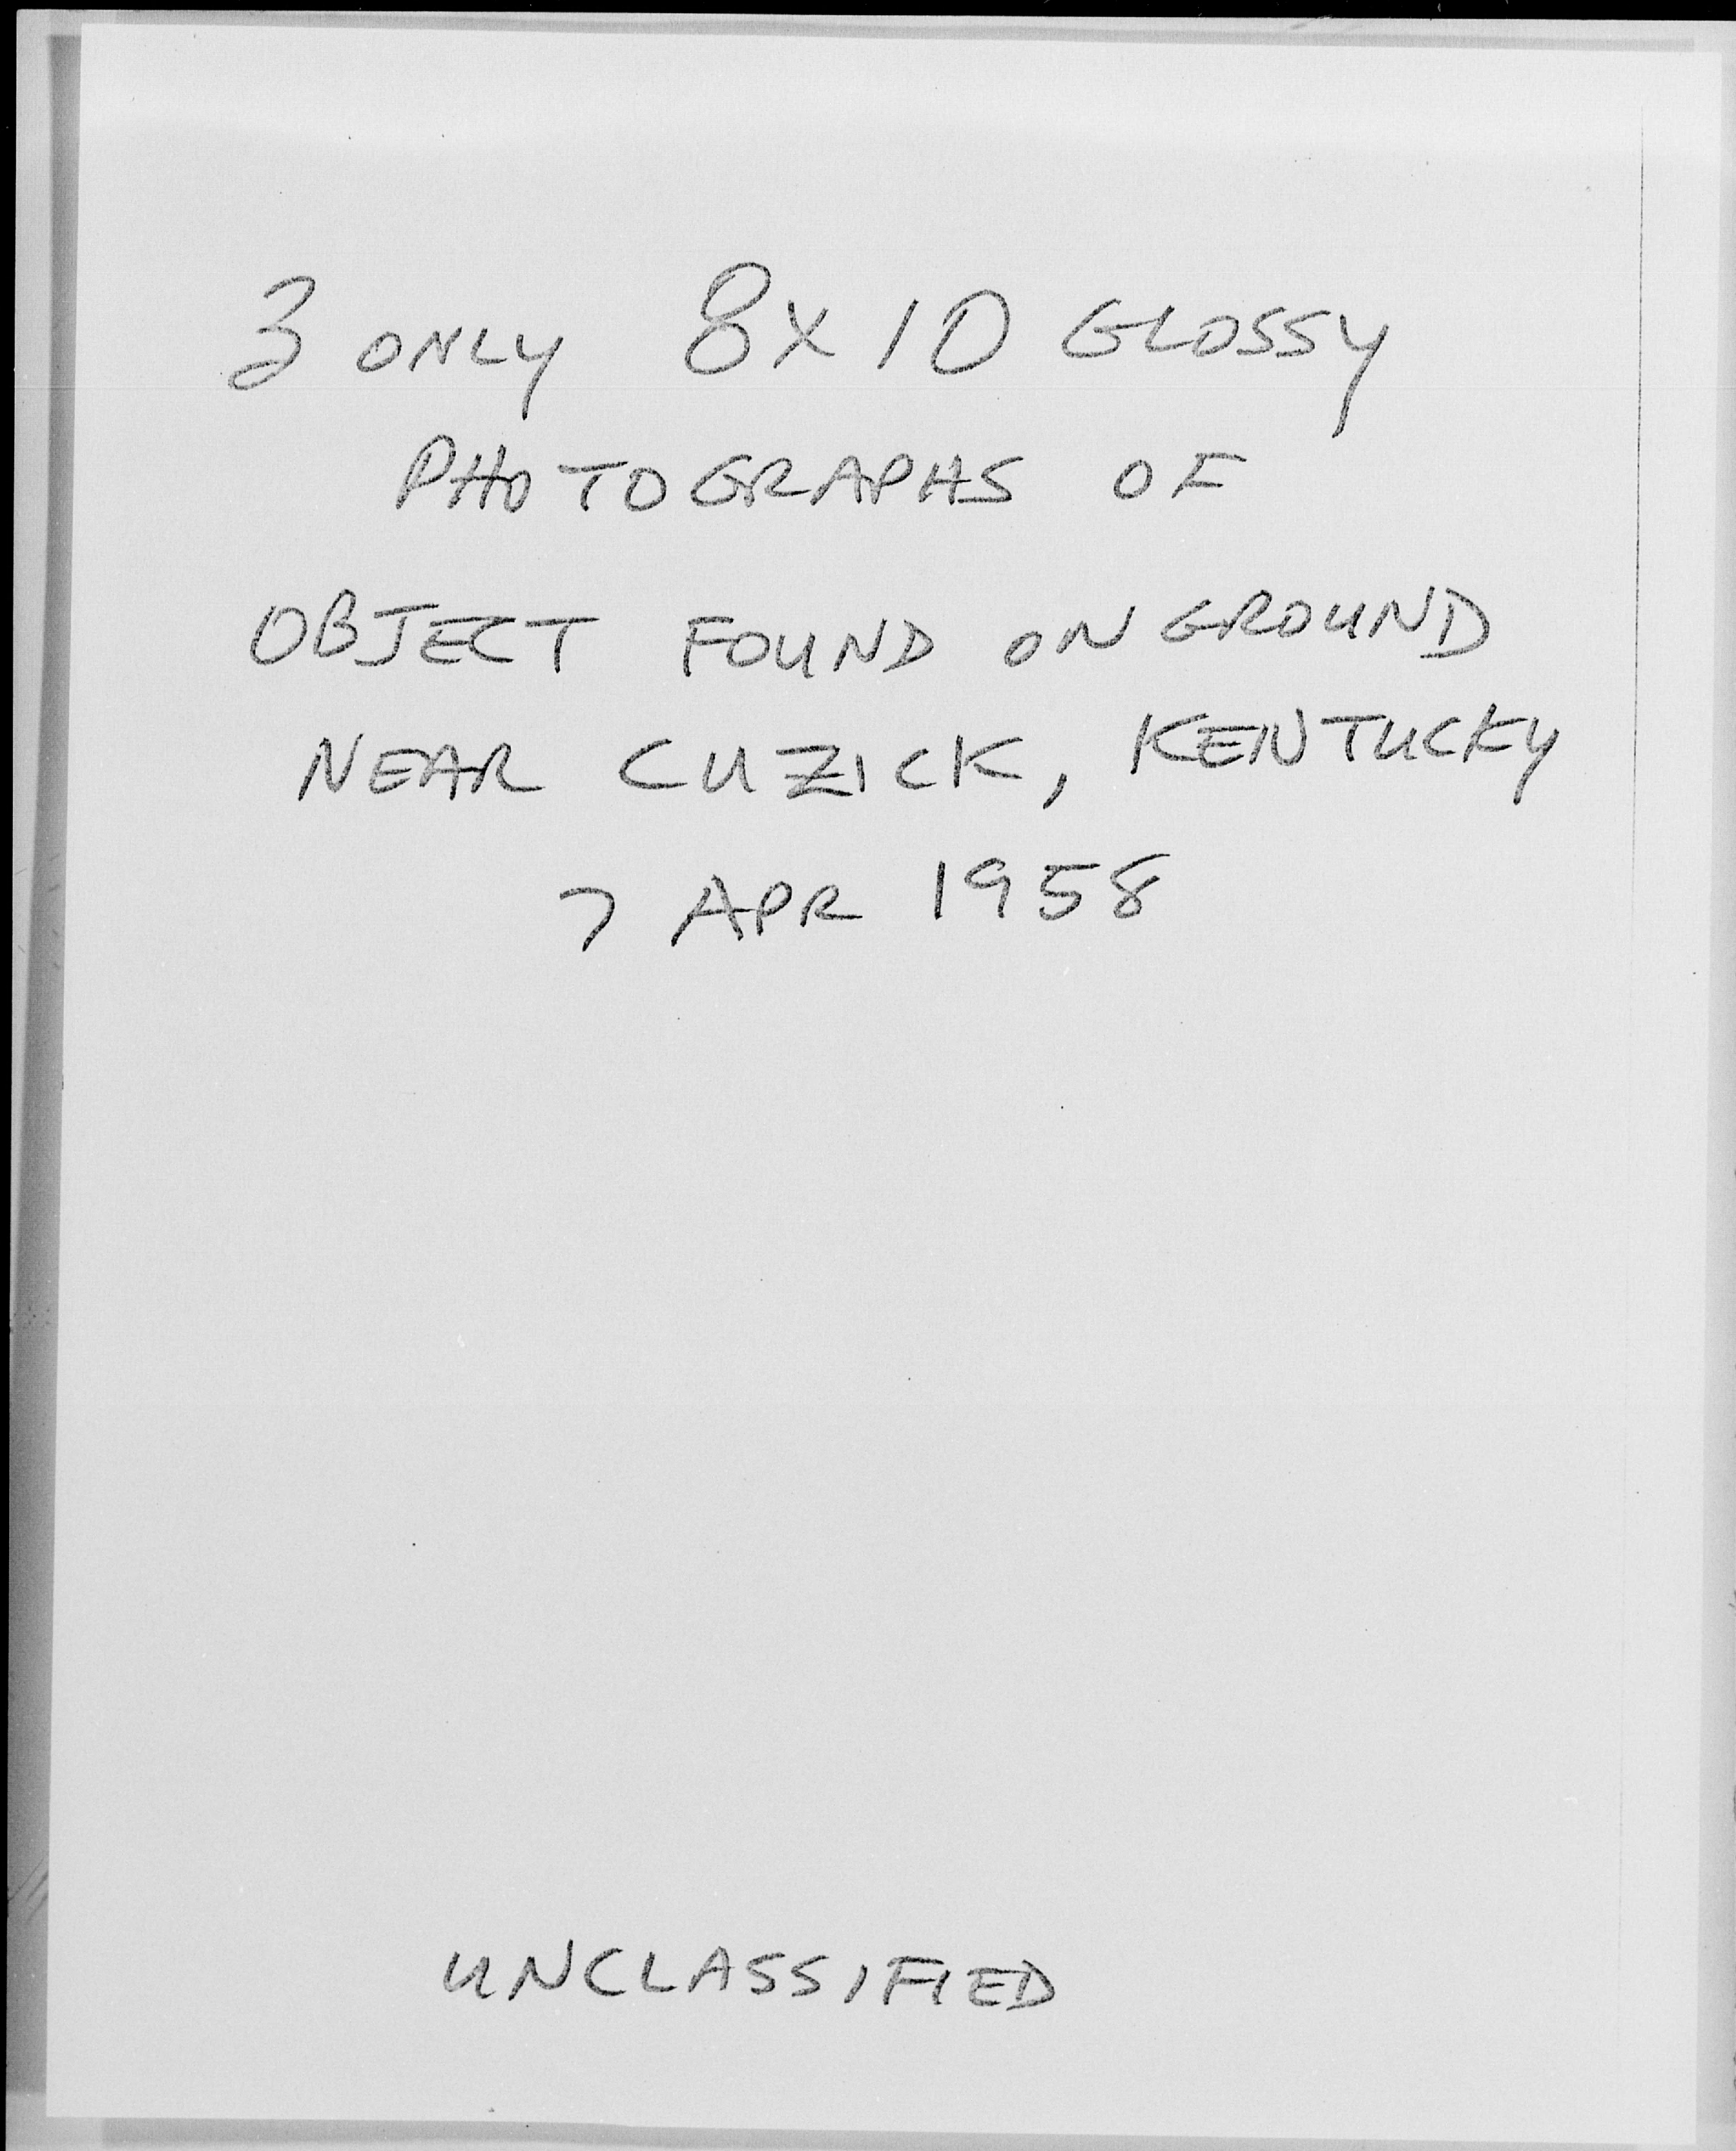 3 ONLY 8X10 GLOSSY
PHOTOGRAPHS OF
OBJECT FOUND ON GROUND
NEAR CUZICK, KENTUCKY
7 APR 1958
UNCLASSIFIED